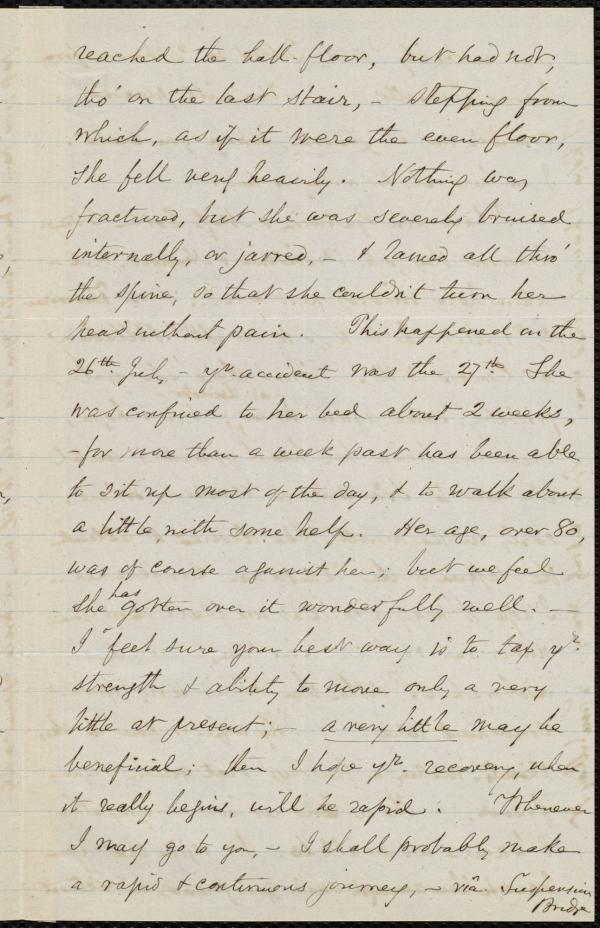 reached the hall-floor, but had not,
tho' on the last stair, - stepping from
which, as if it were the even floor,
she fell very heavily. Nothing was
fractured, but she was severely bruised
internally, or jarred, - & lamed all thro'
the spine, so that she couldn't turn her
head without pain. This happened on the
26th July, - yr. accident was the 27th. She
was confined to her bed about 2 weeks,
- for more than a week past has been able
to sit up most of the day, & to walk about
a little with some help. Her age, over 80,
was of course against her; but we feel
she has gotten over it wonderfully well. -
I feel sure your best way is to tax yr.
strength & ability to move only a very
little at present; - a very little may be
beneficial; then I hope yr. recovery, when
it really begins, will be rapid. Whenever
I may go to you, - I shall probably make
a rapid & continuous journey, - via Suspension
Bridge